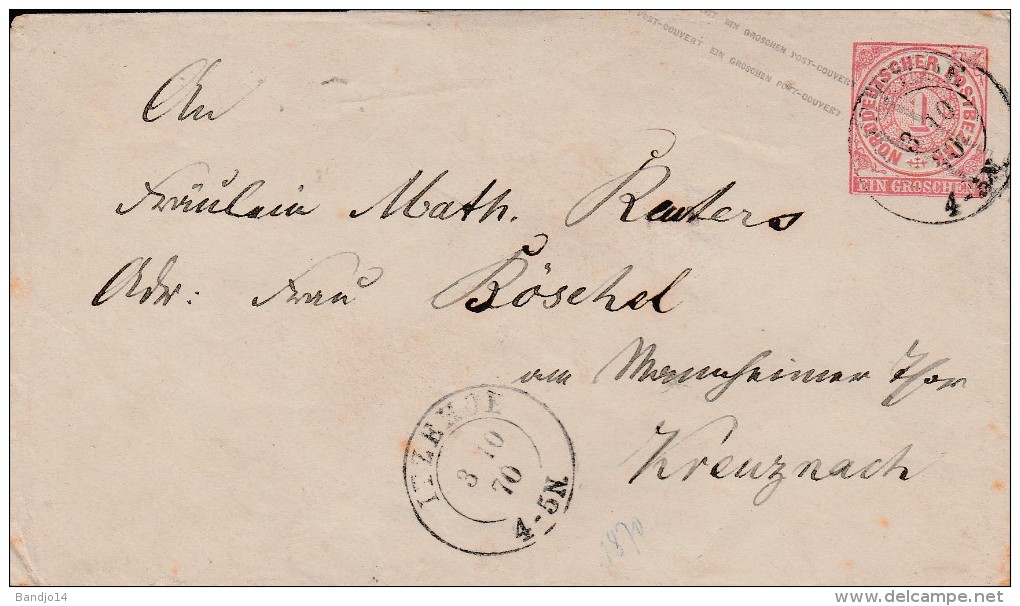 EIN GROSCHEN POST-COUVERT
POST-COUVERT EIN GROSCHEN POST-COUVERT
NORDDEUTSCHER POSTBEZIRK
1
EIN GROSCHEN
3 10
70
4-5N.
An
Fräulein Math. Reuters
Adr: Frau Böschel
am Mannheimer Thor
Kreuznach
ITZEHOE
3 10
70
4-5N.
1870
Bandjo14
delcampe.net